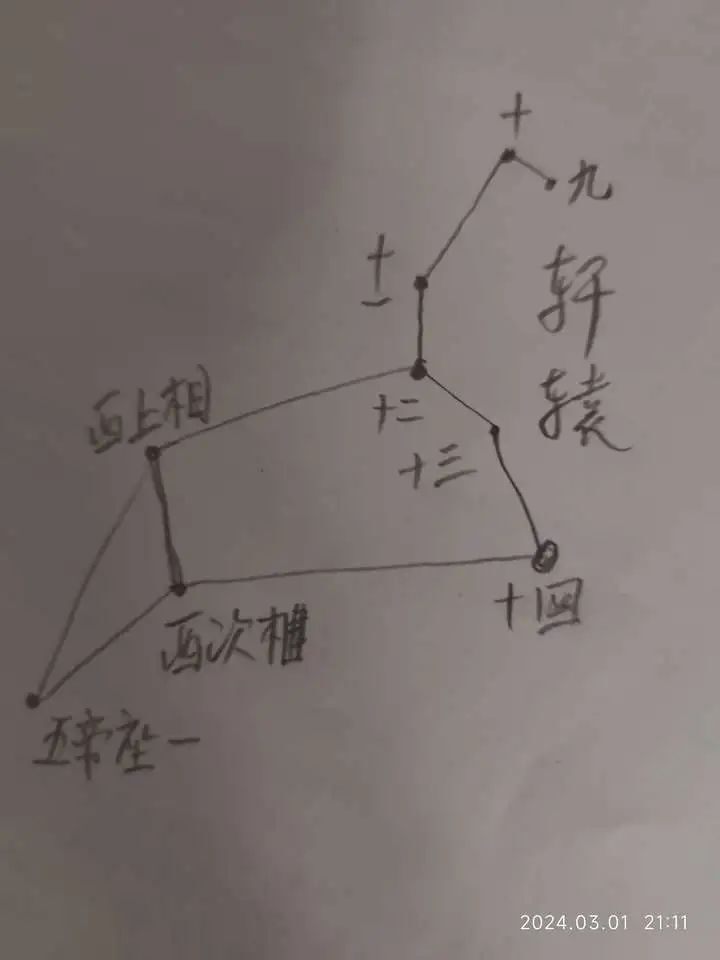 十
九
十一
轩辕
西上相
十二
十三
西次相
十四
五帝座一
2024.03.01 21:11